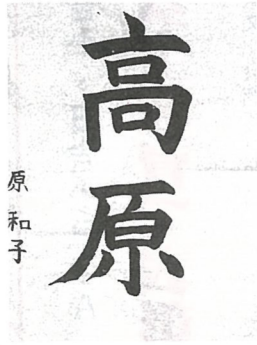 高原
原和子